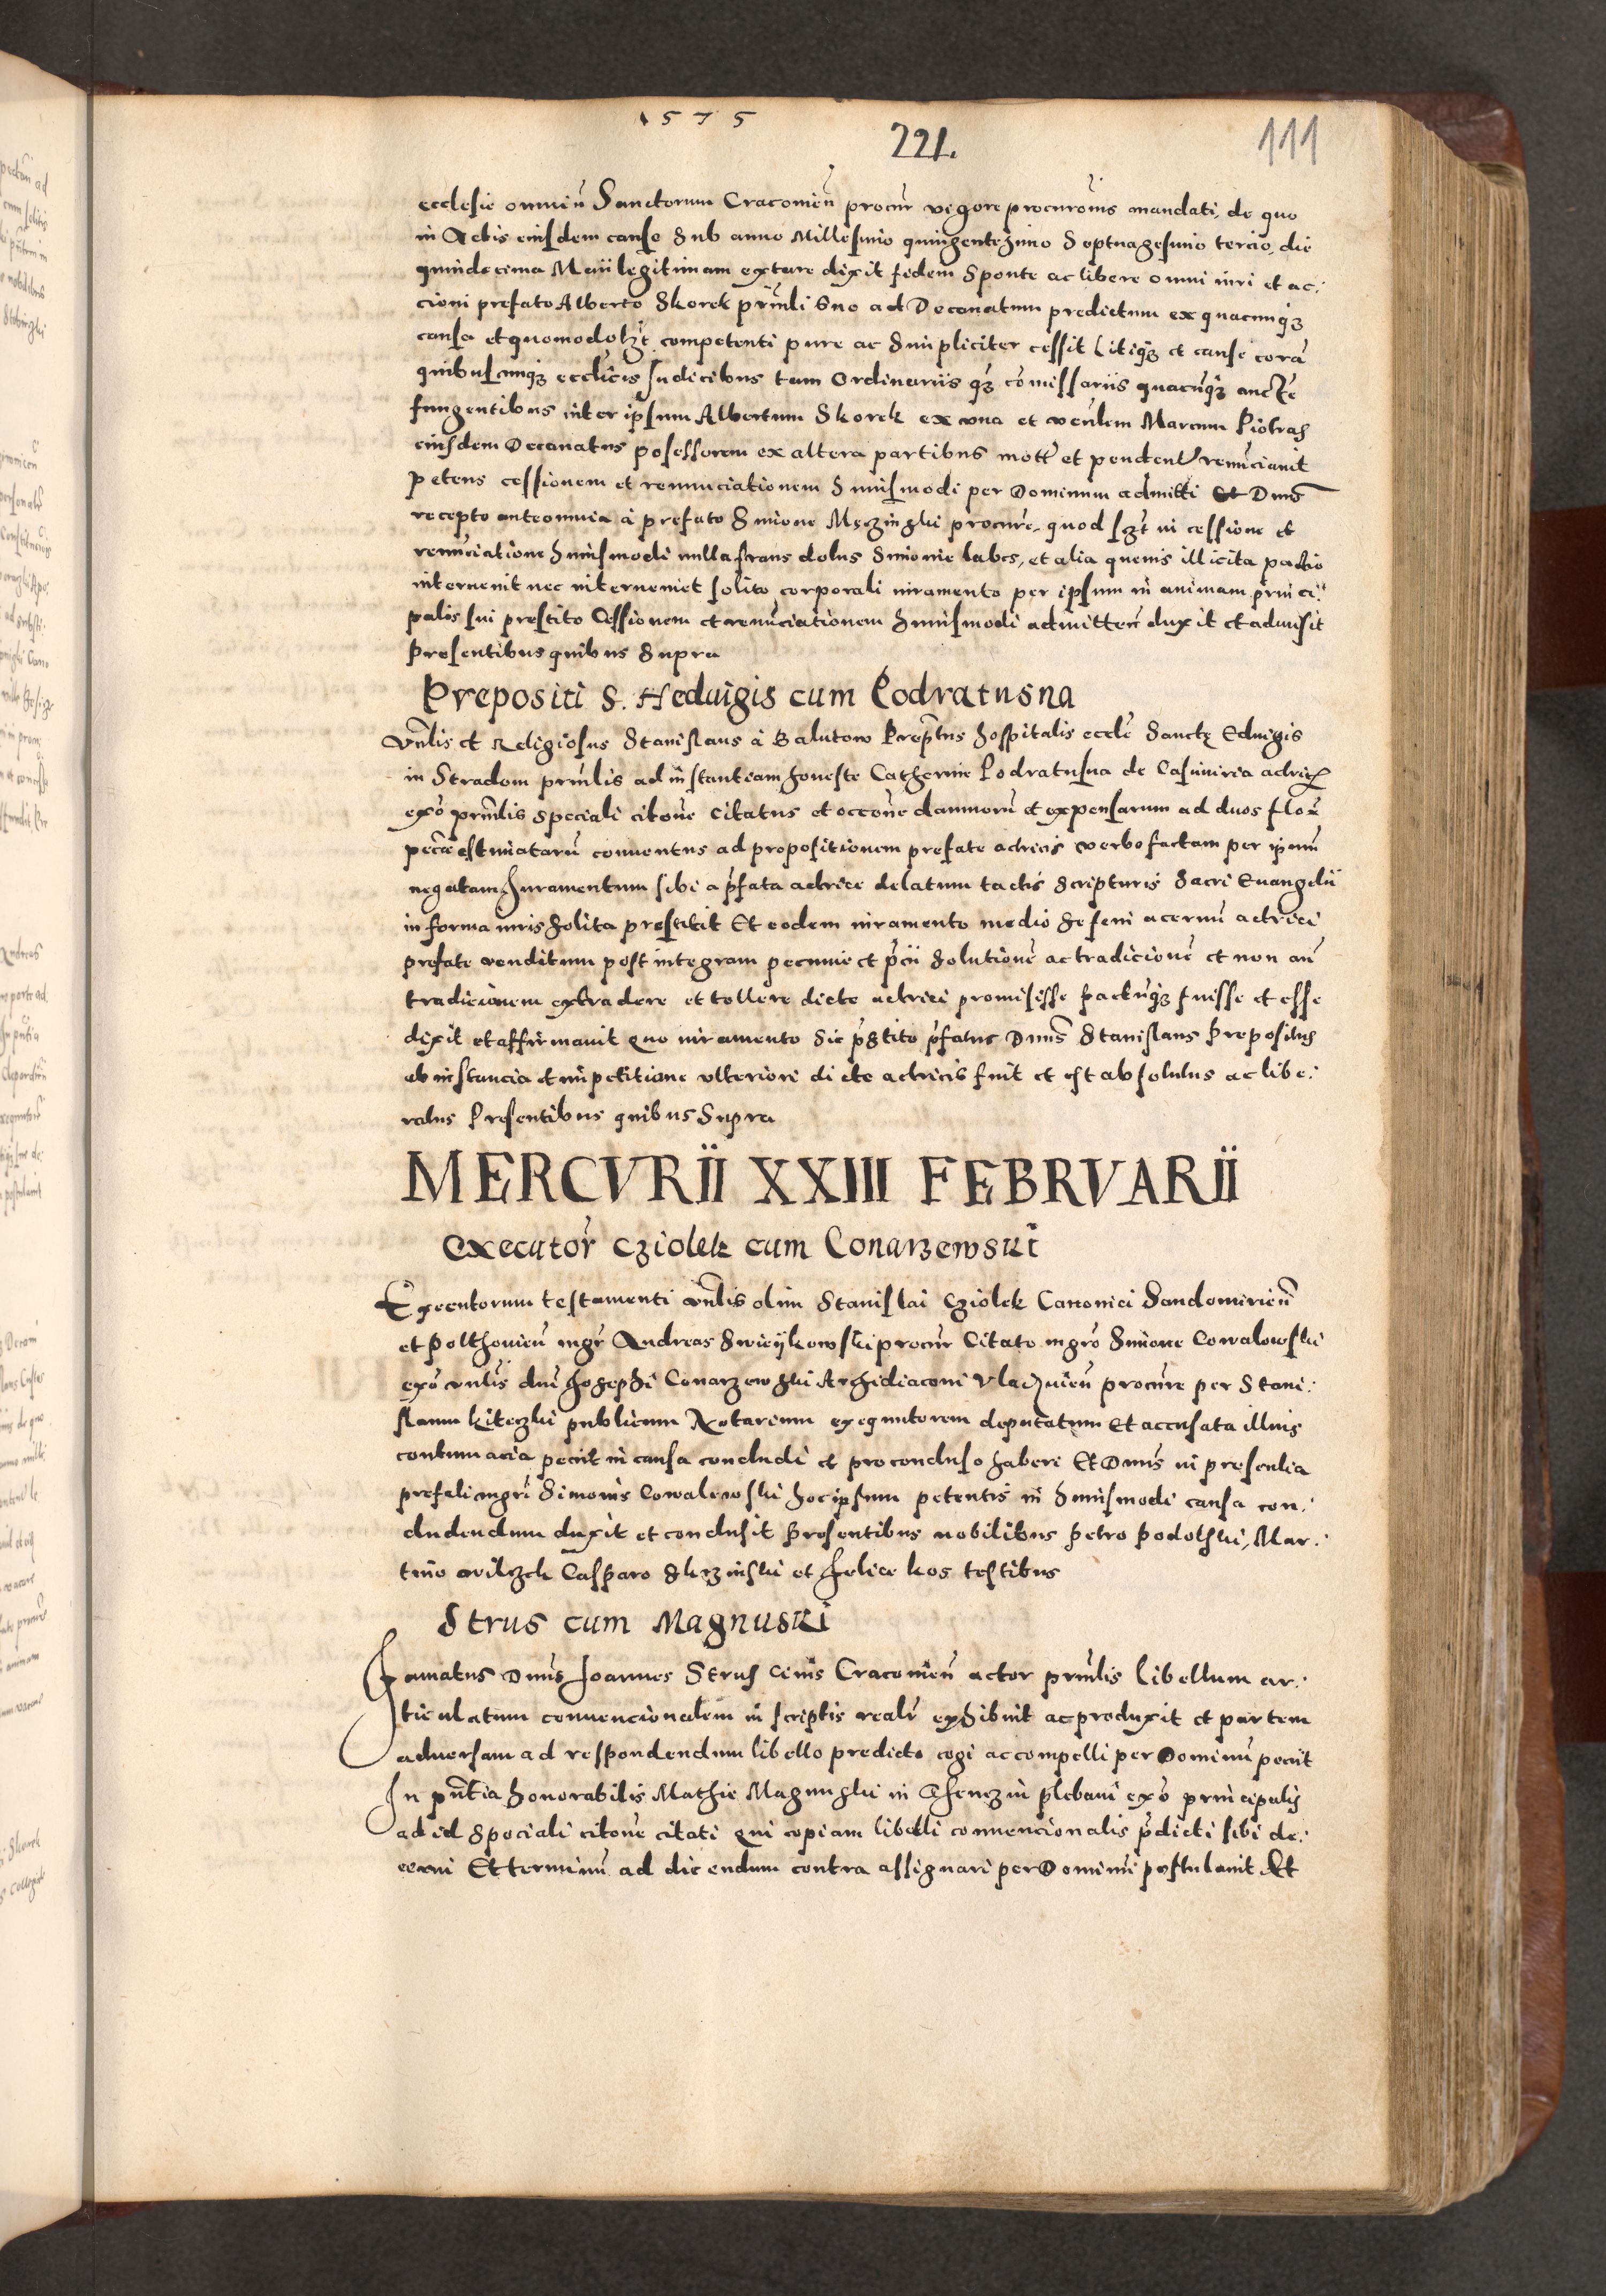 1575
221.
111
ecclesie omniũ Sanctorum Cracovieñ procur̃ vigore procurom̃s mandati, de quo
in Actis eiusdem cause Sub anno Millesimo quingentezimo Septuagesimo tercio, die
quindecima Maii legitimam extare dixit fidem Sponte ac libere omni iuri et ac:
cioni prefato Alberto Skorek prin̄li Suo ad Decanatum predictum ex quacunq3
causa et quomodolz̃t competenti pure ac Simpliciter cessit litiq3 et cause corã
quibuscunq3 ecclĩcis Judicibus tam Ordinariis q3 cõmissariis quacũq3 aucтẽ
fungentibus inter ipsum Albertum Skorek ex una et veñlem Marcum Piotras
eiusdem Decanatus posessorem ex altera partibus mott̃ et pendent̃ renũciavit
petens cessionem et renunciationem huiusmodi per Dominum admitti Et Dnus̃
recepto ante omnia à prefato Simone procur̃e, quod sz̃t in cessione et
renũciatione huiusmodi nulla fraus dolus Simonie labes, et alia quevis illicita pactio
intervenit nec interveniet solito corporali iuramento per ipsum in animam princi:
palis sui prestito Cessionem et renũciationem huiusmodi admitteñ duxit et admisit
Presentibus quibus Supra
Prepositi S. Hedvigis cum Podratusna
Vñlis et Religiosus Stanislaus à Balutow Prep̃tus hospitalis eccle Sanctę Edvigis
in Stradom prin̄lis ad instantiam honeste Catherine Podratusna de Casimiria actricis
exõ prin̄lis speciali citoñe citatus et occoñe damnorũ et expensarum ad duos flor̃
pecũe estimatarũ conventus ad propositionem prefate actricis verbo factam per ip̃um
negatam Juramentum sibi a p̃fata actrice delatum tactis scripturis Sacri Evangelii
in forma iuris solita prestitit Et eodem iuramento medio se feni acervũ actrici
prefate venditum post integram pecunie et p̃cii solutionẽ ac tradicionẽ et non añ
tradicionem extradere et tollere dicte actrici promisisse pactũq3 fuisse et esse
dixit et affirmavit Quo iuramento sic p̃stito p̃fatus Dnus̃ Stanislaus Prepositus
ab instancia et impetitione ulteriori dicte actricis fuit et est absolutus ac libe:
ratus Presentibus quibus Supra
MERCVRII XXIII FEBRVARII
Executor̃ Cziolek cum Conarzewski
Executorum testamenti vñlis olim Stanislai Cziolek Canonici Sandomirieñ
et Polthovieñ mgr̃ Andreas Swieykowski procur̃ Citato mgr̃o Simone Cowalowski
exõ vñlis dni Josephi Conarzewski Archidiaconi Vladzvieñ procur̃e per Stani:
slaum Kiteczki publicum Notarium exequutorem deputatum Et accusata illius
contumacia peciit in causa concludi et pro concluso haberi Et Dnus̃ in presentia
prefati mgr̃i Simonis Cowalewski hoc ipsum petentis in huiusmodi causa con:
cludendum duxit et conclusit Presentibus nobilibus Petro Podolski, Mar:
tino Wilczek Casparo et Felice Kos testibus
Strus cum Magnuski
Famatus Dnus̃ Joannes Strus Civis Cracovieñ actor prin̄lis libellum ar:
ticulatum convencionalem in scriptis realr̃ exhibuit ac produxit et partem
adversam ad respondendum libello predicto cogi ac compelli per Dominũ peciit
In pñtia honorabilis Mathie Magnuski in Thenczin plebani exõ principalis
ad id speciali citoñe citati qui copiam libelli convencionalis p̃dicti sibi de:
cerni Et terminũ ad dicendum contra assignari per Dominũ postulavit Et